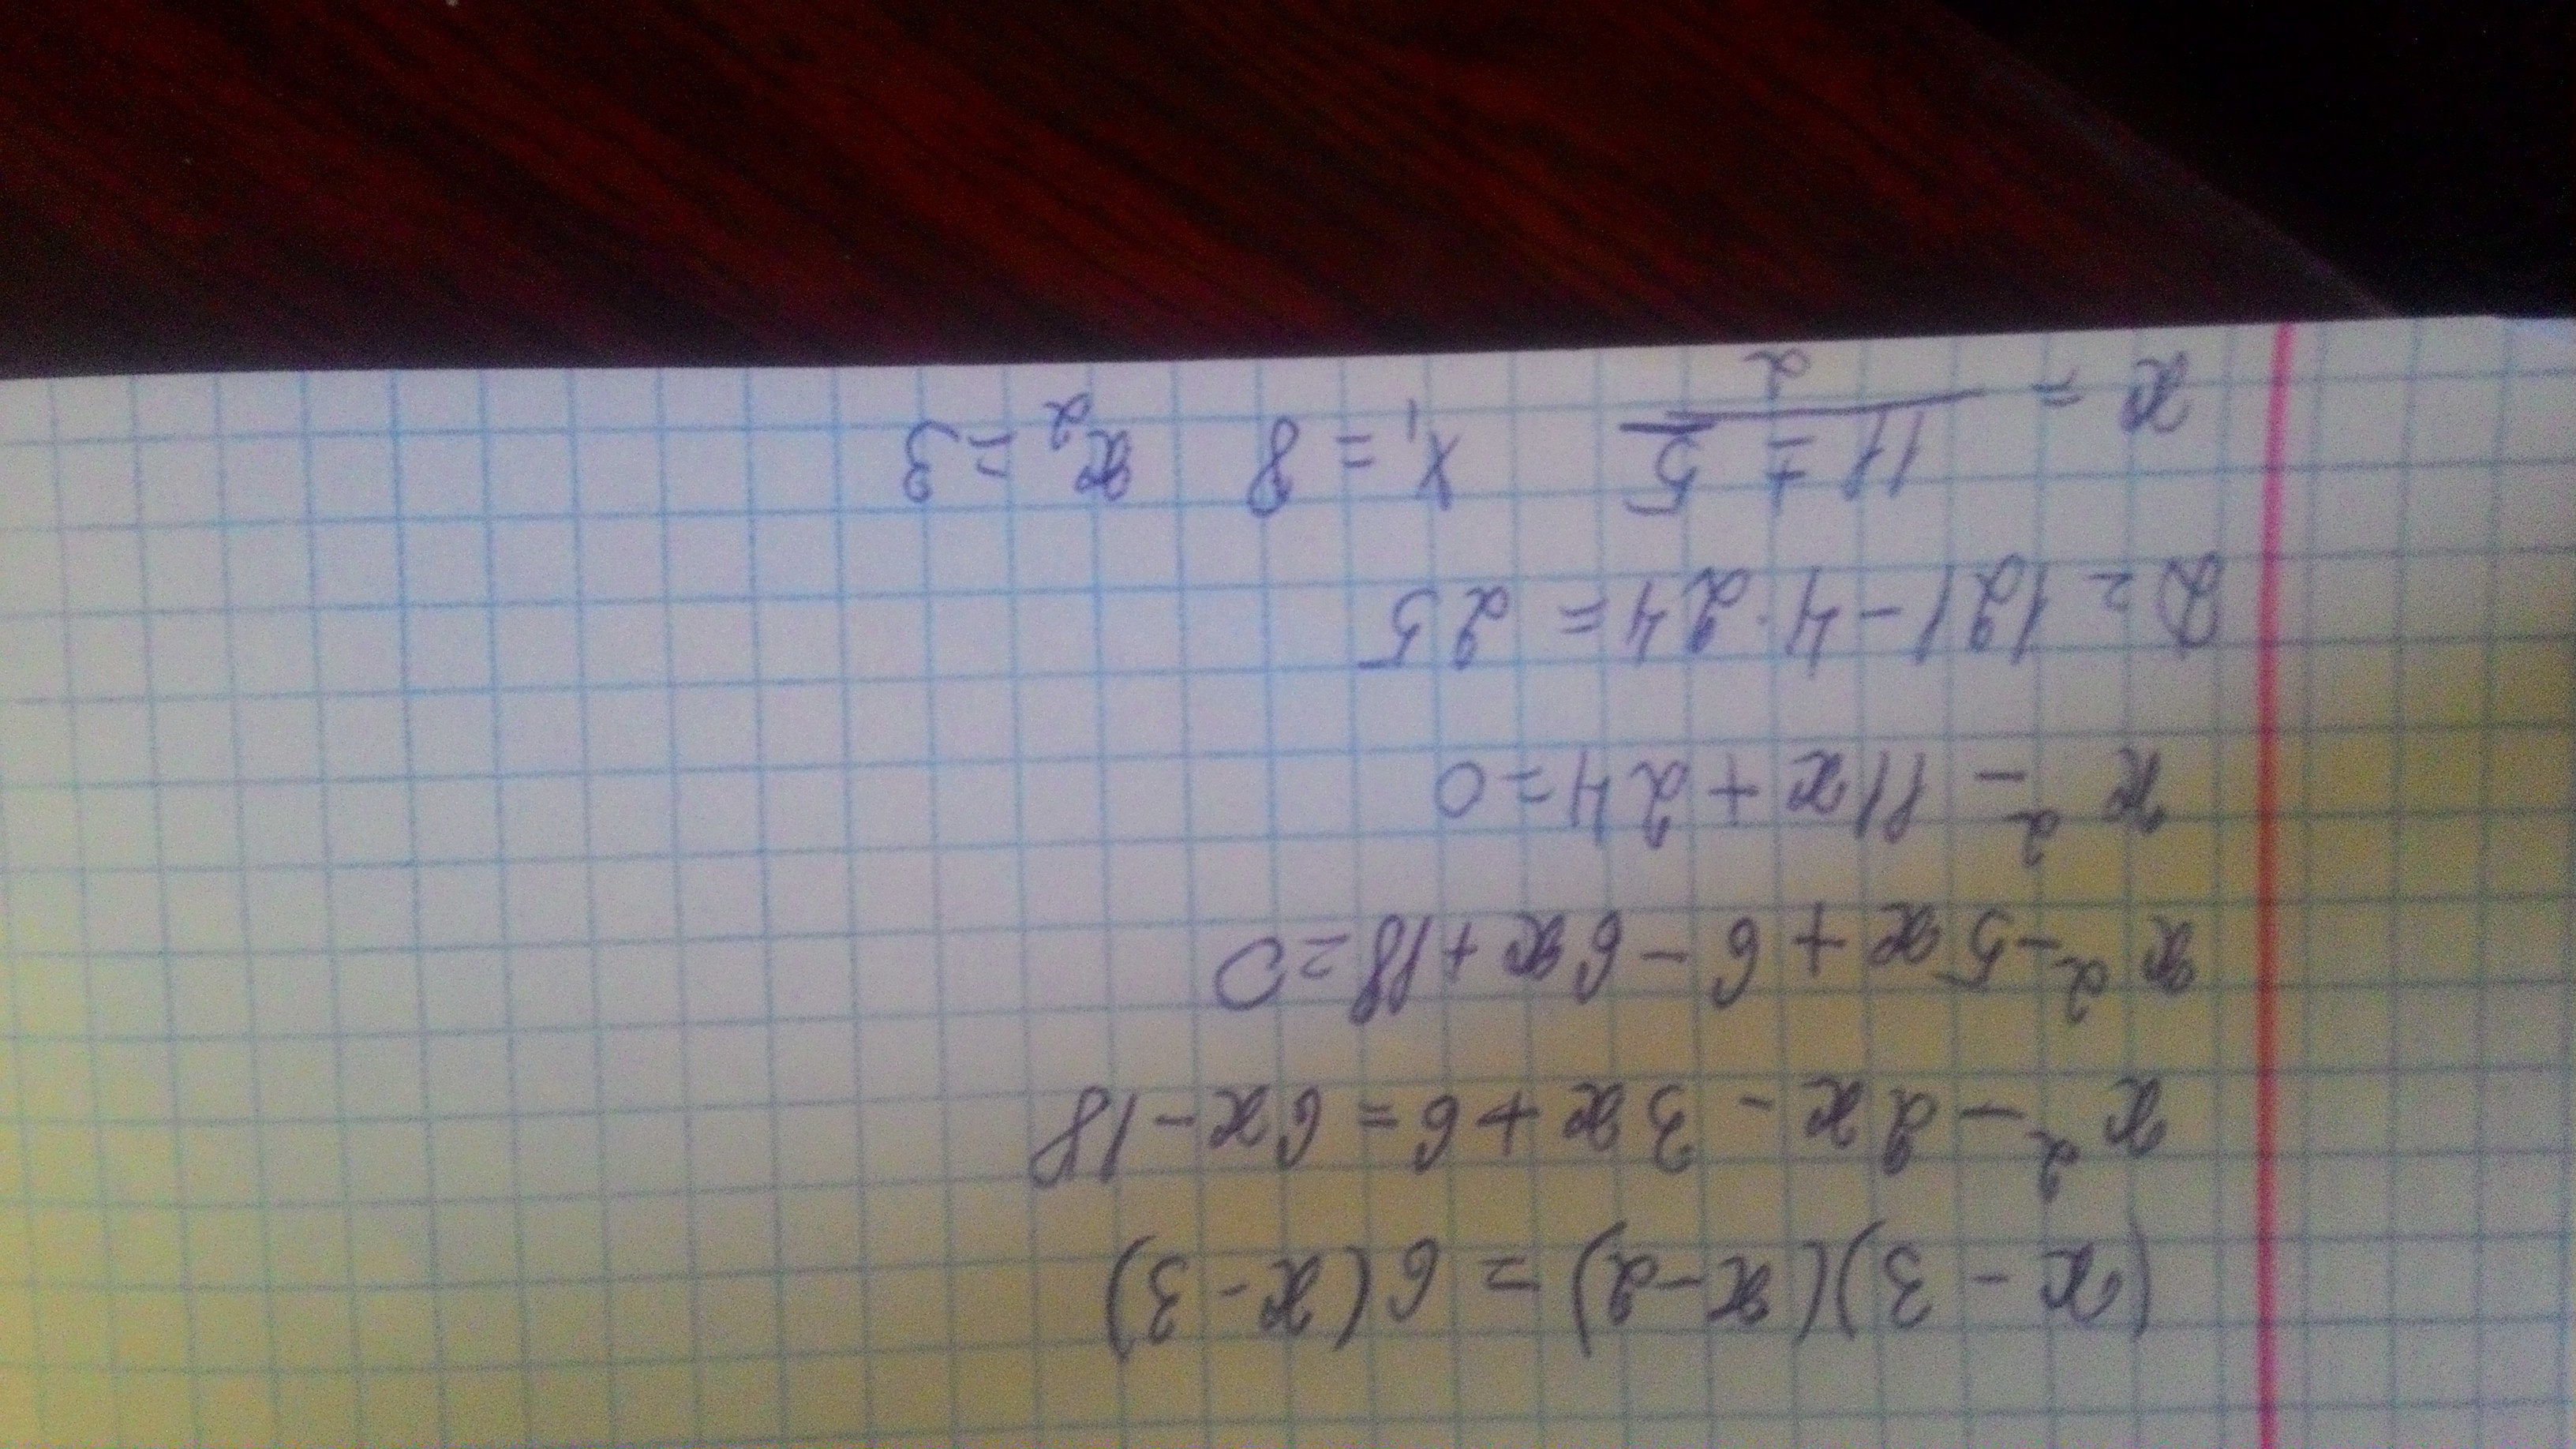 (x - 3)(x - 2) = 6(x - 3)
x² - 2x - 3x + 6 = 6x - 18
x² - 5x + 6 - 6x + 18 = 0
x² - 11x + 24 = 0
D = 121 - 4 · 24 = 25
x = (11 ± 5)/2 x₁ = 8 x₂ = 3